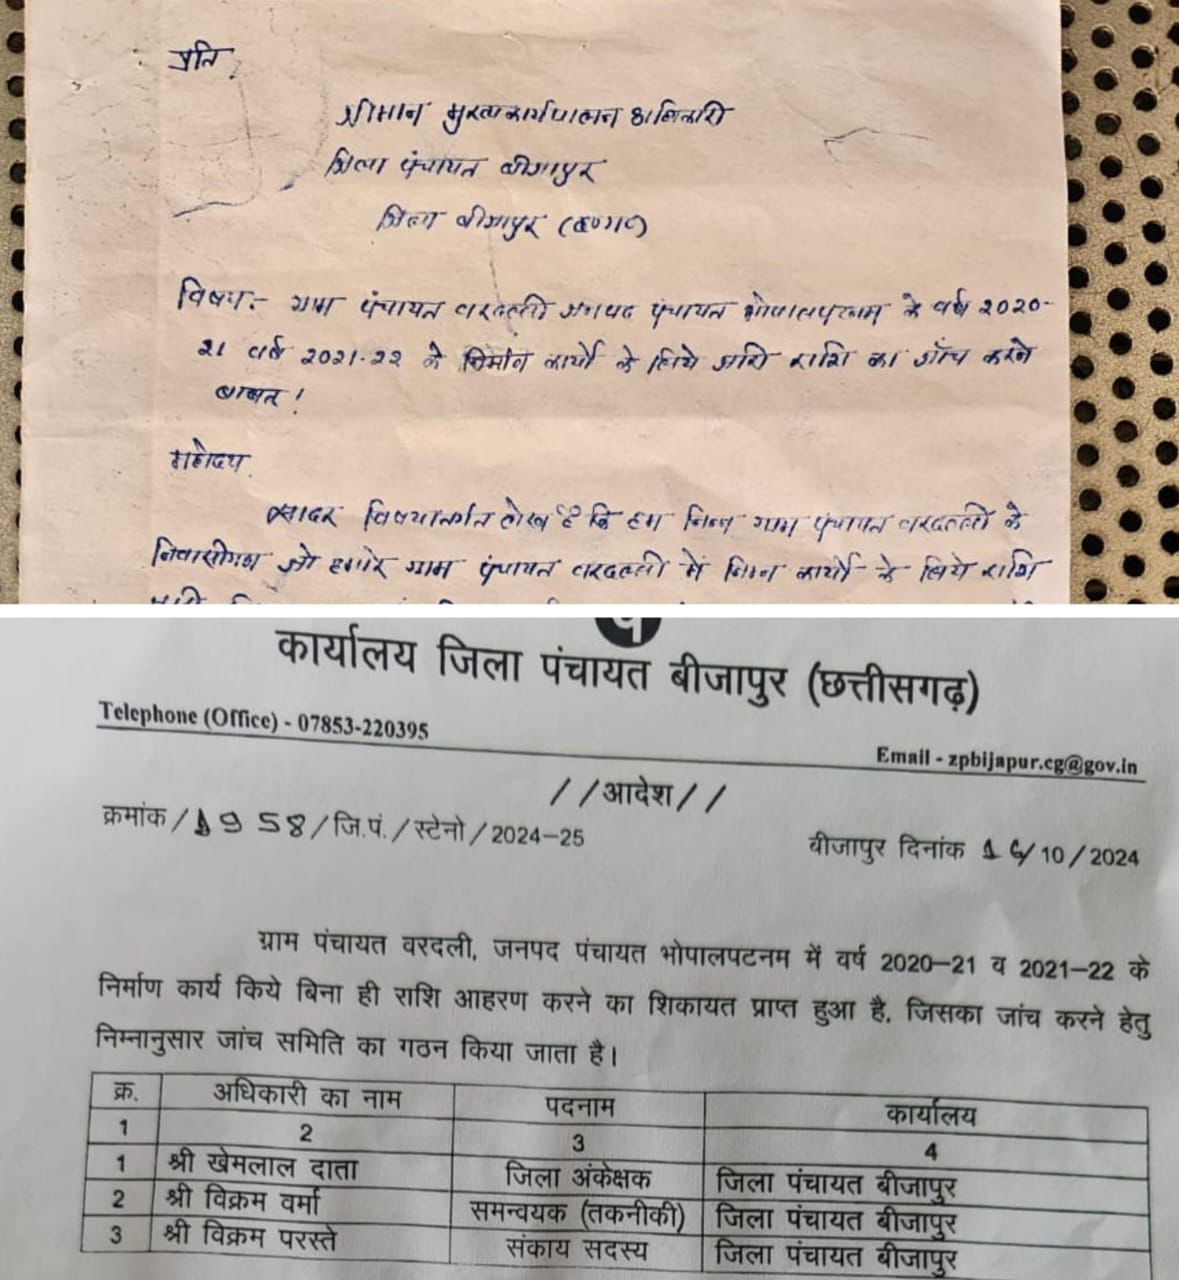 प्रति,
श्रीमान मुख्यकार्यपालन अधिकारी
जिला पंचायत बीजापुर
जिला बीजापुर (छ०ग०)
विषय:- ग्राम पंचायत वरदल्ली जनपद पंचायत भोपालपटनम के वर्ष 2020-
21 वर्ष 2021-22 के निर्माण कार्यो के लिये राशि का जाँच करने
बाबत!
महोदय
सादर विषयार्न्तगत लेख है कि हम निम्न ग्राम पंचायत वरदल्ली के
निवासीगण जो हमारे ग्राम पंचायत वरदल्ली में निम्न कार्यो के लिये राशि
कार्यालय जिला पंचायत बीजापुर (छत्तीसगढ़)
Telephone (Office) - 07853-220395
Email - zpbijapur.cg@gov.in
//आदेश//
क्रमांक/1958/जि.पं./स्टेनो/2024-25
बीजापुर दिनांक /10/2024
ग्राम पंचायत वरदली, जनपद पंचायत भोपालपटनम में वर्ष 2020-21 व 2021-22 के
निर्माण कार्य किये बिना ही राशि आहरण करने का शिकायत प्राप्त हुआ है, जिसका जांच करने हेतु
निम्नानुसार जांच समिति का गठन किया जाता है।
क्र. अधिकारी का नाम पदनाम कार्यालय
1 2 3 4
1 श्री खेमलाल दाता जिला अंकेक्षक जिला पंचायत बीजापुर
2 श्री विक्रम वर्मा समन्वयक (तकनीकी) जिला पंचायत बीजापुर
3 श्री विक्रम परस्ते संकाय सदस्य जिला पंचायत बीजापुर